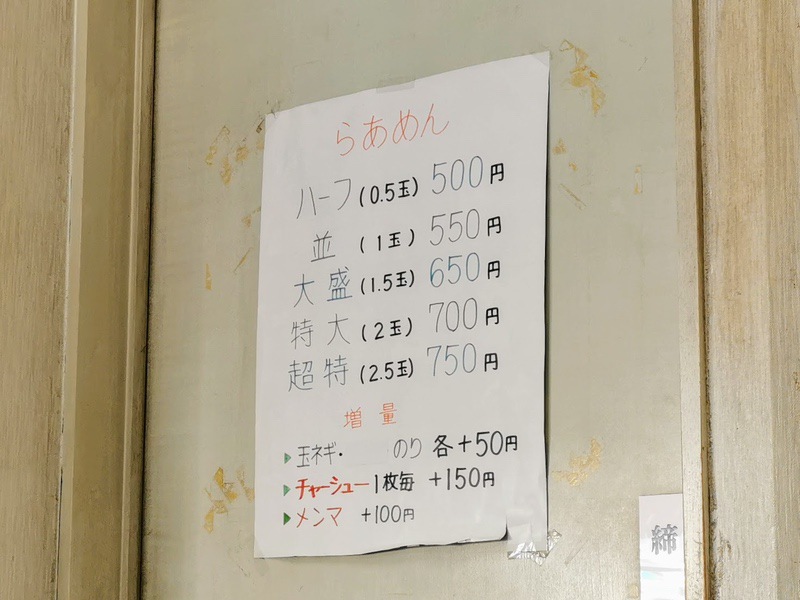 らあめん
ハーフ(0.5玉) 500円
並 (1玉) 550円
大盛(1.5玉) 650円
特大(2玉) 700円
超特(2.5玉) 750円
増量
▶玉ネギ・ のり 各+50円
▶チャーシュー1枚毎 +150円
▶メンマ +100円
締